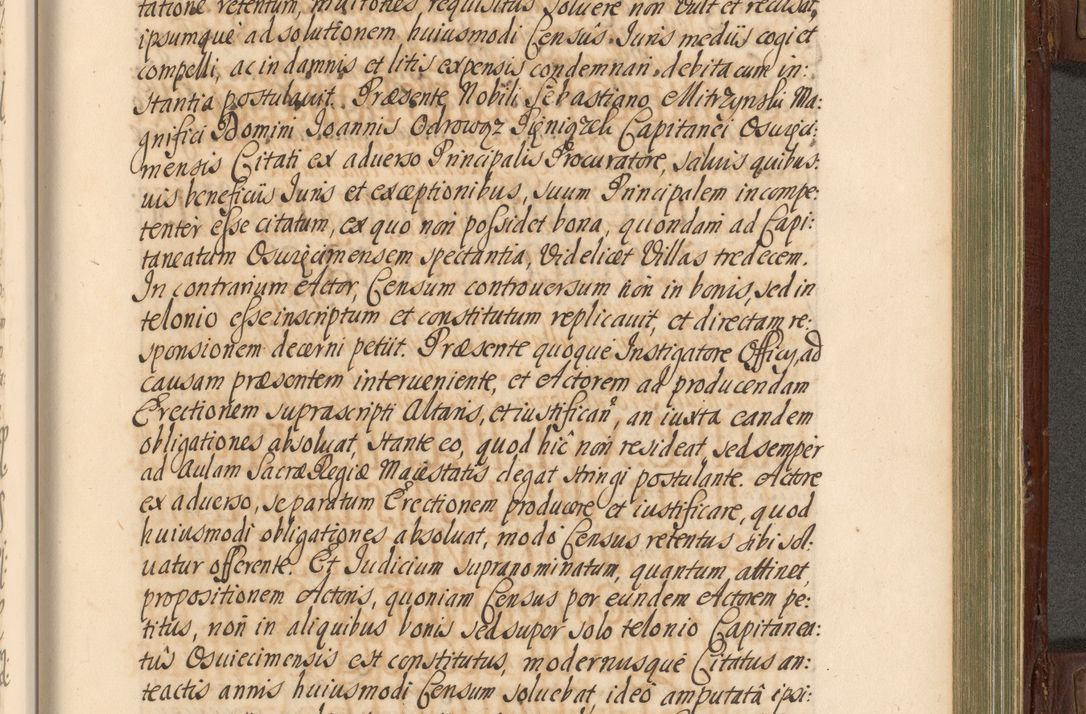 tatione retentum, multones requisitus soluere non vult et recusat,
ipsumque ad solutionem huiusmodi Censûs Iuris medijs cogi et
compelli, ac in damnis et litis expensis condemnari, debita cum in:
stantia postulauit. Præsente Nobili Sebastiano Mitrzynski Ma:
gnifici Domini Ioannis Odrowąz Pieniązek Capitanei Osuieci:
mensis Citati ex aduerso Principalis Procuratore, saluis quibus:
uis beneficijs Iuris et exceptionibus, suum Principalem incompe:
tenter esse citatum, ex quo non possidet bona, quondam ad Capi:
taneatum Osuiecimensem spectantia, Videlicet Villas tredecem.
In contrarium Actor, Censum controuersum non in bonis, sed in
telonio esse inscriptum et constitutum replicauit, et directam re:
sponsionem decerni petijt. Præsente quoque Instigatore Officij, ad
causam præsentem interueniente, et Actorem ad producendam
Erectionem suprascripti Altaris, et iustifican̄, an iuxta eandem
obligationes absoluat, stante eo, quod hic non resideat, sed semper
ad Aulam Sacræ Regiæ Maiestatis degat stringi postulante. Actore
ex aduerso, separatum Erectionem producere et iustificare, quod
huiusmodi obligationes absoluat, modo Census retentus sibi sol:
uatur offerente. Et Iudicium supranominatum, quantum attinet
propositionem Actoris, quoniam Census per eundem Actorem pe:
titus, non in aliquibus bonis sed super solo telonio Capitanea:
tûs Osuiecimensis est constitutus, modernusque Citatus an:
teactis annis huiusmodi Censum soluebat, ideo amputatâ ipsi: